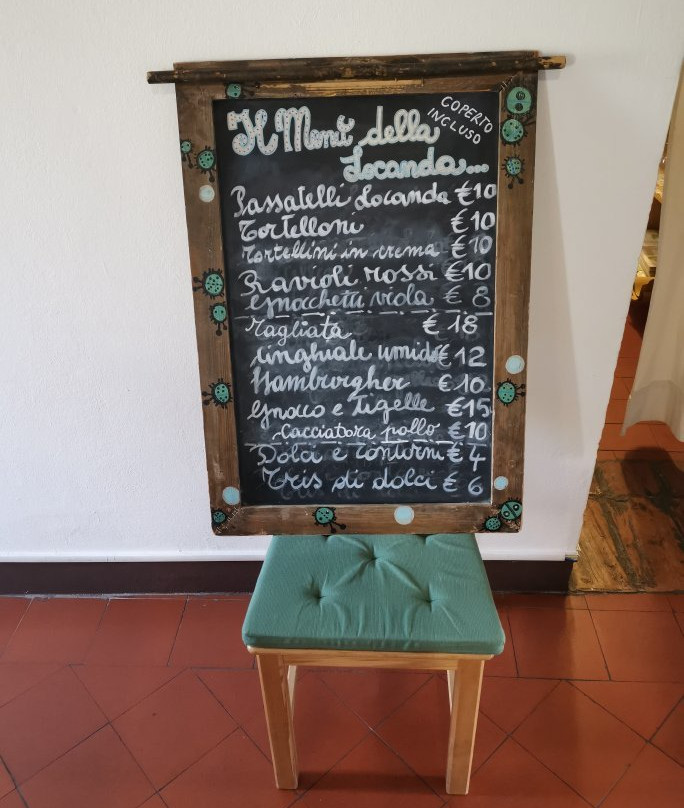 Il Menù della
Locanda...
COPERTO
INCLUSO
Passatelli Locanda €10
Tortelloni €10
Tortellini in crema €10
Ravioli rossi €10
Gnocchetti viola € 8
Tagliata € 18
Cinghiale umido €12
Hamburgher €10
Gnoco e Tigelle €15
Cacciatora pollo €10
Dolci e contorni € 4
Tris di dolci € 6